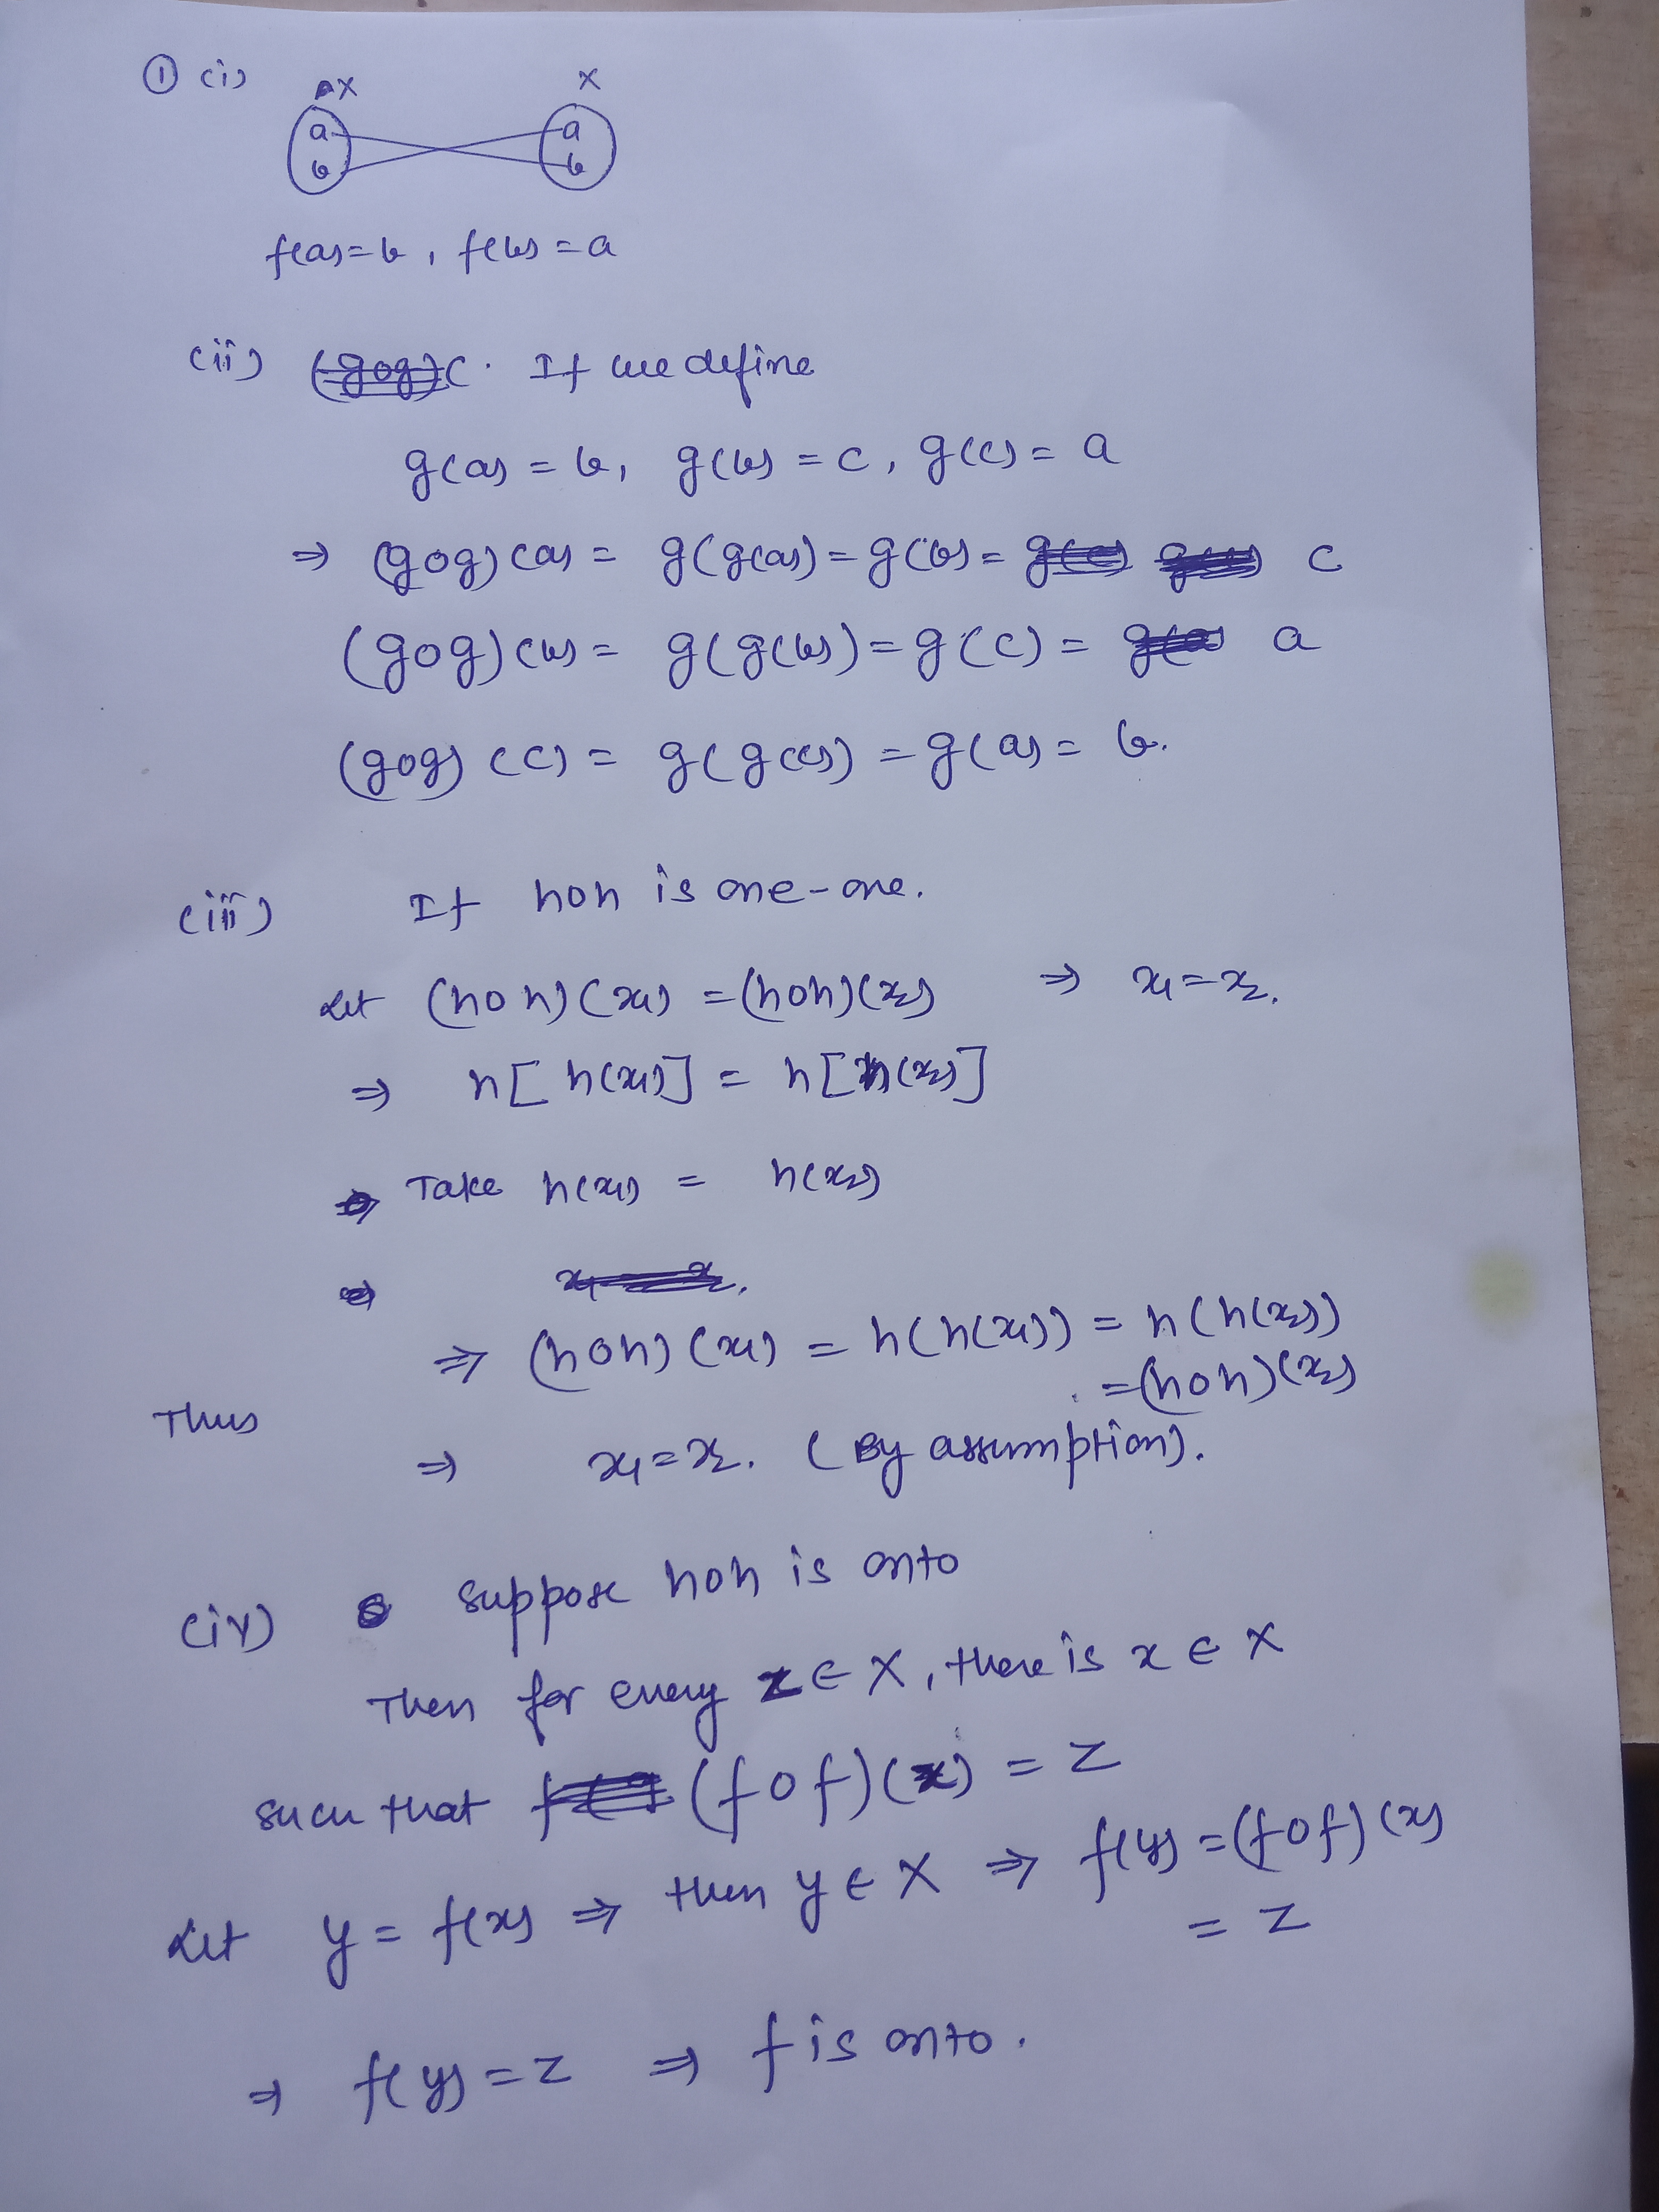 ① (i)
X X
a a
b b
f(a)=b, f(b)=a
(ii) If we define
g(a) = b, g(b) = c, g(c) = a
⇒ (gog)(a) = g(g(a)) = g(b) = c
(gog)(b) = g(g(b)) = g(c) = a
(gog)(c) = g(g(c)) = g(a) = b.
(iii) If hoh is one-one.
Let (hoh)(x₁) = (hoh)(x₂) ⇒ x₁=x₂.
⇒ h[h(x₁)] = h[h(x₂)]
Take h(x₁) = h(x₂)
⇒ (hoh)(x₁) = h(h(x₁)) = h(h(x₂))
=(hoh)(x₂)
Thus
⇒ x₁=x₂. (By assumption).
(iv) Suppose hoh is onto
Then for every z ∈ X, there is x ∈ X
such that (fof)(x) = z
Let y = f(x) ⇒ then y ∈ X ⇒ f(y) = (fof)(x)
= z
⇒ f(y) = z ⇒ f is onto.